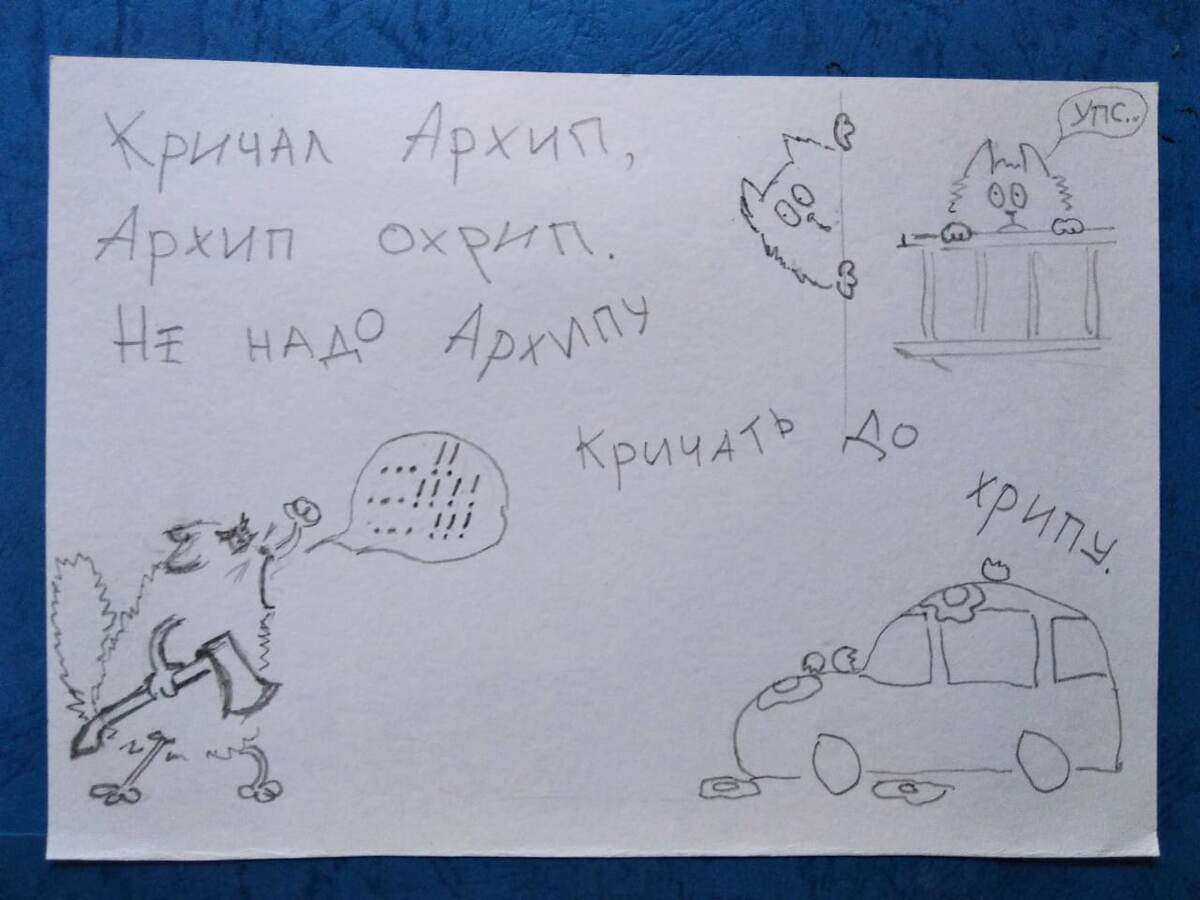 Кричал Архип,
Архип охрип.
Не надо Архипу
кричать до
хрипу.
упс..
... !!
...!!!!
... !!!